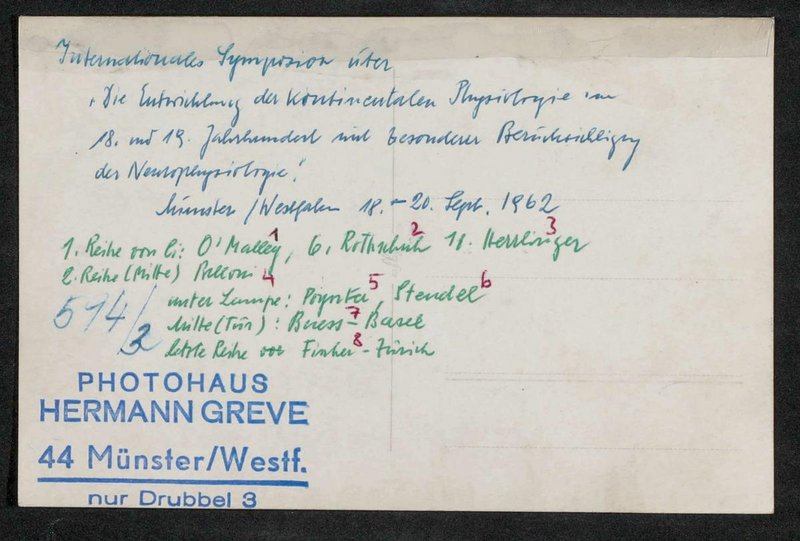 Internationales Symposion über
"Die Entwicklung der kontinentalen Physiologie im
18. und 19. Jahrhundert mit besonderer Berücksichtigung
der Neurophysiologie".
Münster/Westfalen 18.-20. Sept. 1962
1. Reihe von li: O'Malley 1, 6. Rothschuh 2 11. Herrlinger 3
2. Reihe (Mitte) Belloni 4
unter Lampe: Poynter 5, Steudel 6
Mitte (Tür): Buess 7 - Basel
letzte Reihe Fischer 8 - Zürich
594/3
PHOTOHAUS
HERMANN GREVE
44 Münster/Westf.
nur Drubbel 3